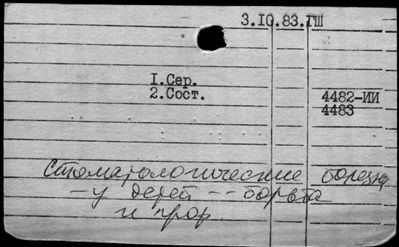 3.10.83.ГШ
1.Сер.
2.Сост.
4482-ИИ
4483
Стоматологические болезни
- у детей -- борьба
и проф.